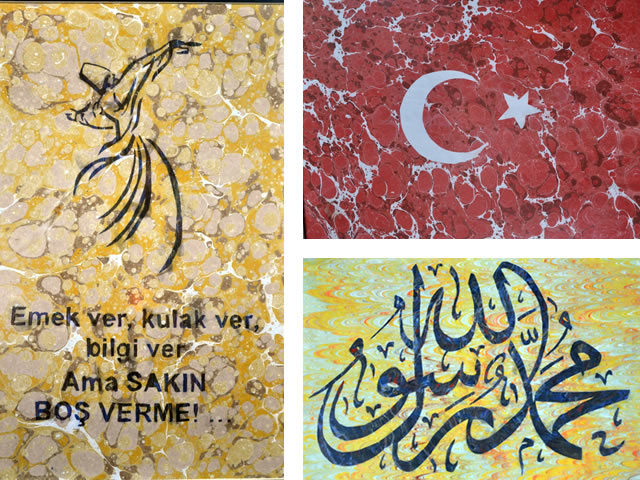 Emek ver, kulak ver,
bilgi ver
Ama SAKIN
BOŞ VERME! ...
محمد رسول الله